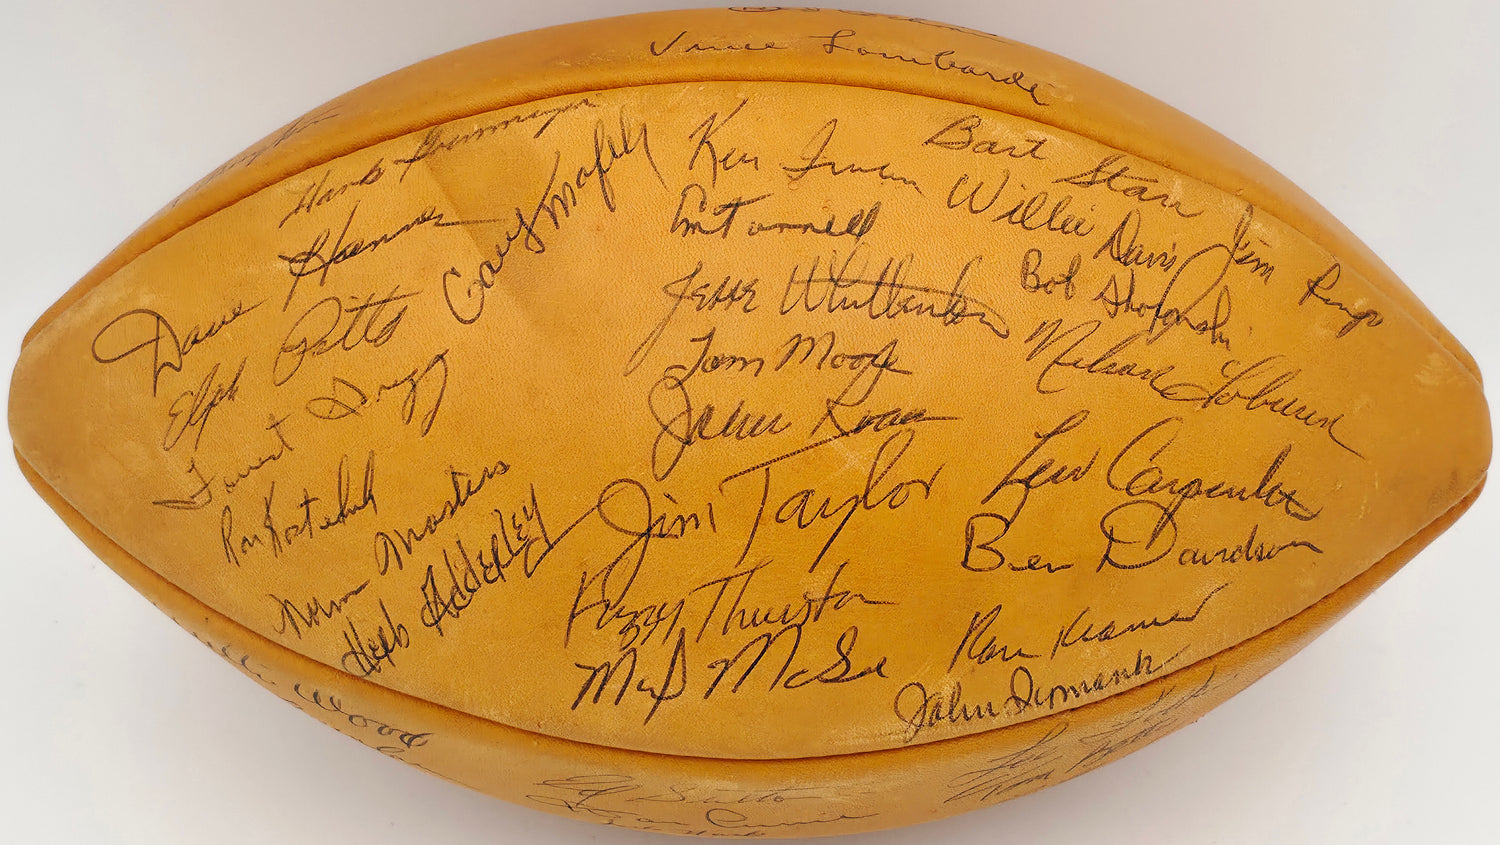 Vince Lombardi
Hank Gremminger
Dave Hanner
Gary Knafelc
Elijah Pitts
Forrest Gregg
Ron Kostelnik
Norm Masters
Herb Adderley
Ken Iman
Em Tunnell
Jesse Whittenton
Tom Moore
John Roach
Jim Taylor
Fuzzy Thurston
Max McGee
Bart Starr
Willie Davis
Jim Ringo
Bob Skoronski
Nelson Toburen
Lew Carpenter
Ben Davidson
Ron Kramer
John Symank
Willie Wood
Ed Sutton
Dan Currie